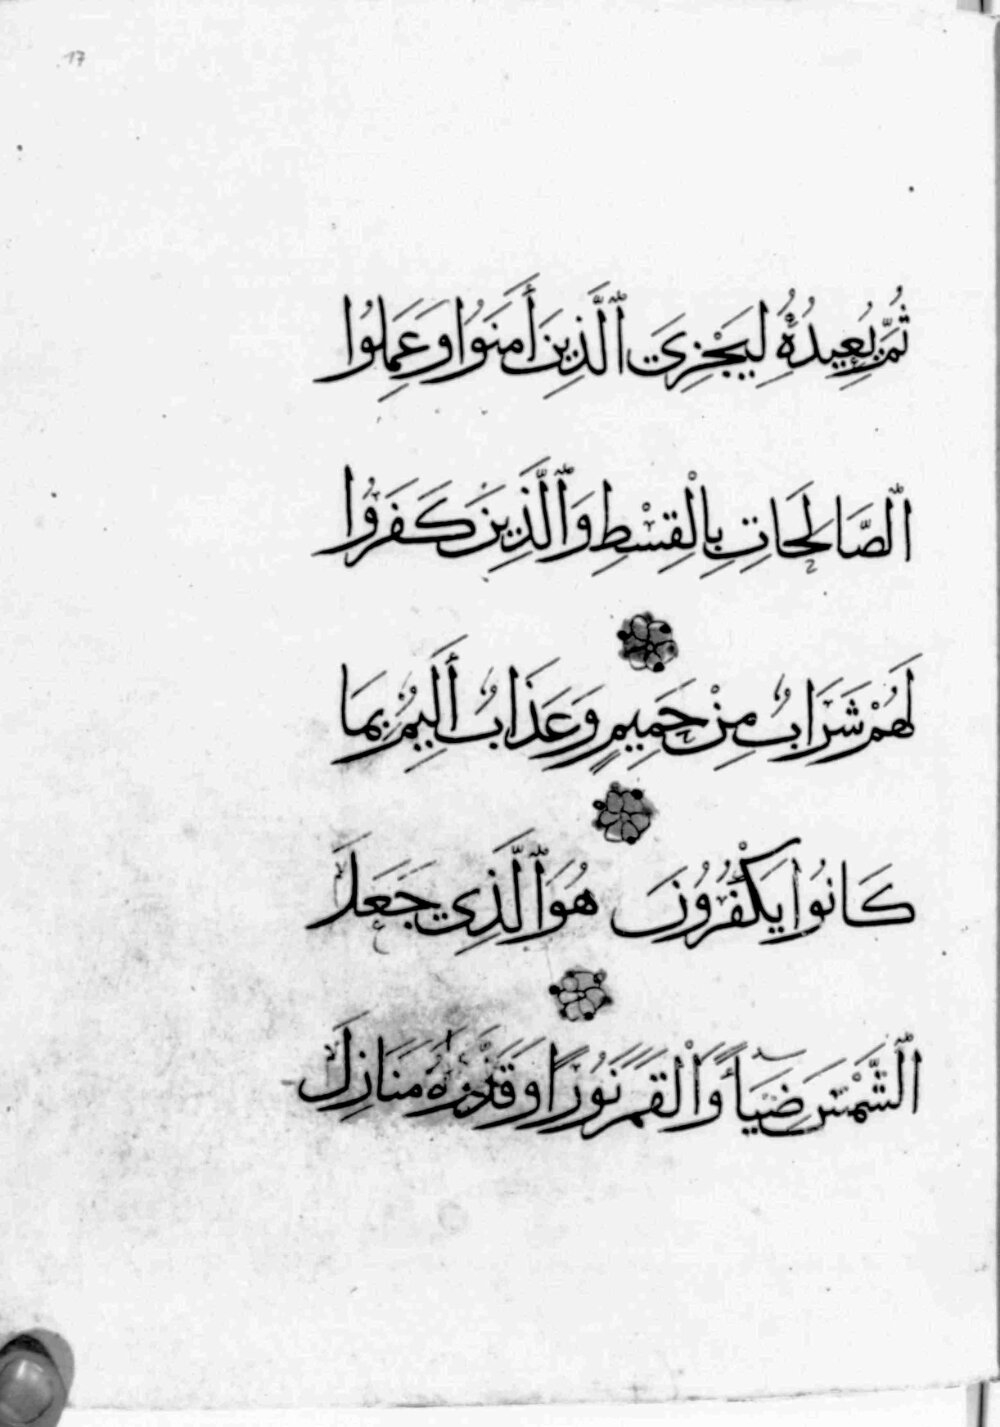 17
ثُمَّ يُعِيدُهُ لِيَجْزِيَ ٱلَّذِينَ أَمَنُوا وَعَمِلُوا
ٱلصَّالِحَاتِ بِالْقِسْطِ وَٱلَّذِينَ كَفَرُوا
لَهُمْ شَرَابٌ مِنْ حَمِيمٍ وَعَذَابٌ أَلِيمٌ بِمَا
كَانُوا يَكْفُرُونَ هُوَ ٱلَّذِي جَعَلَ
ٱلشَّمْسَ ضِيَآءً وَٱلْقَمَرَ نُورًا وَقَدَّرَهُ مَنَازِلَ